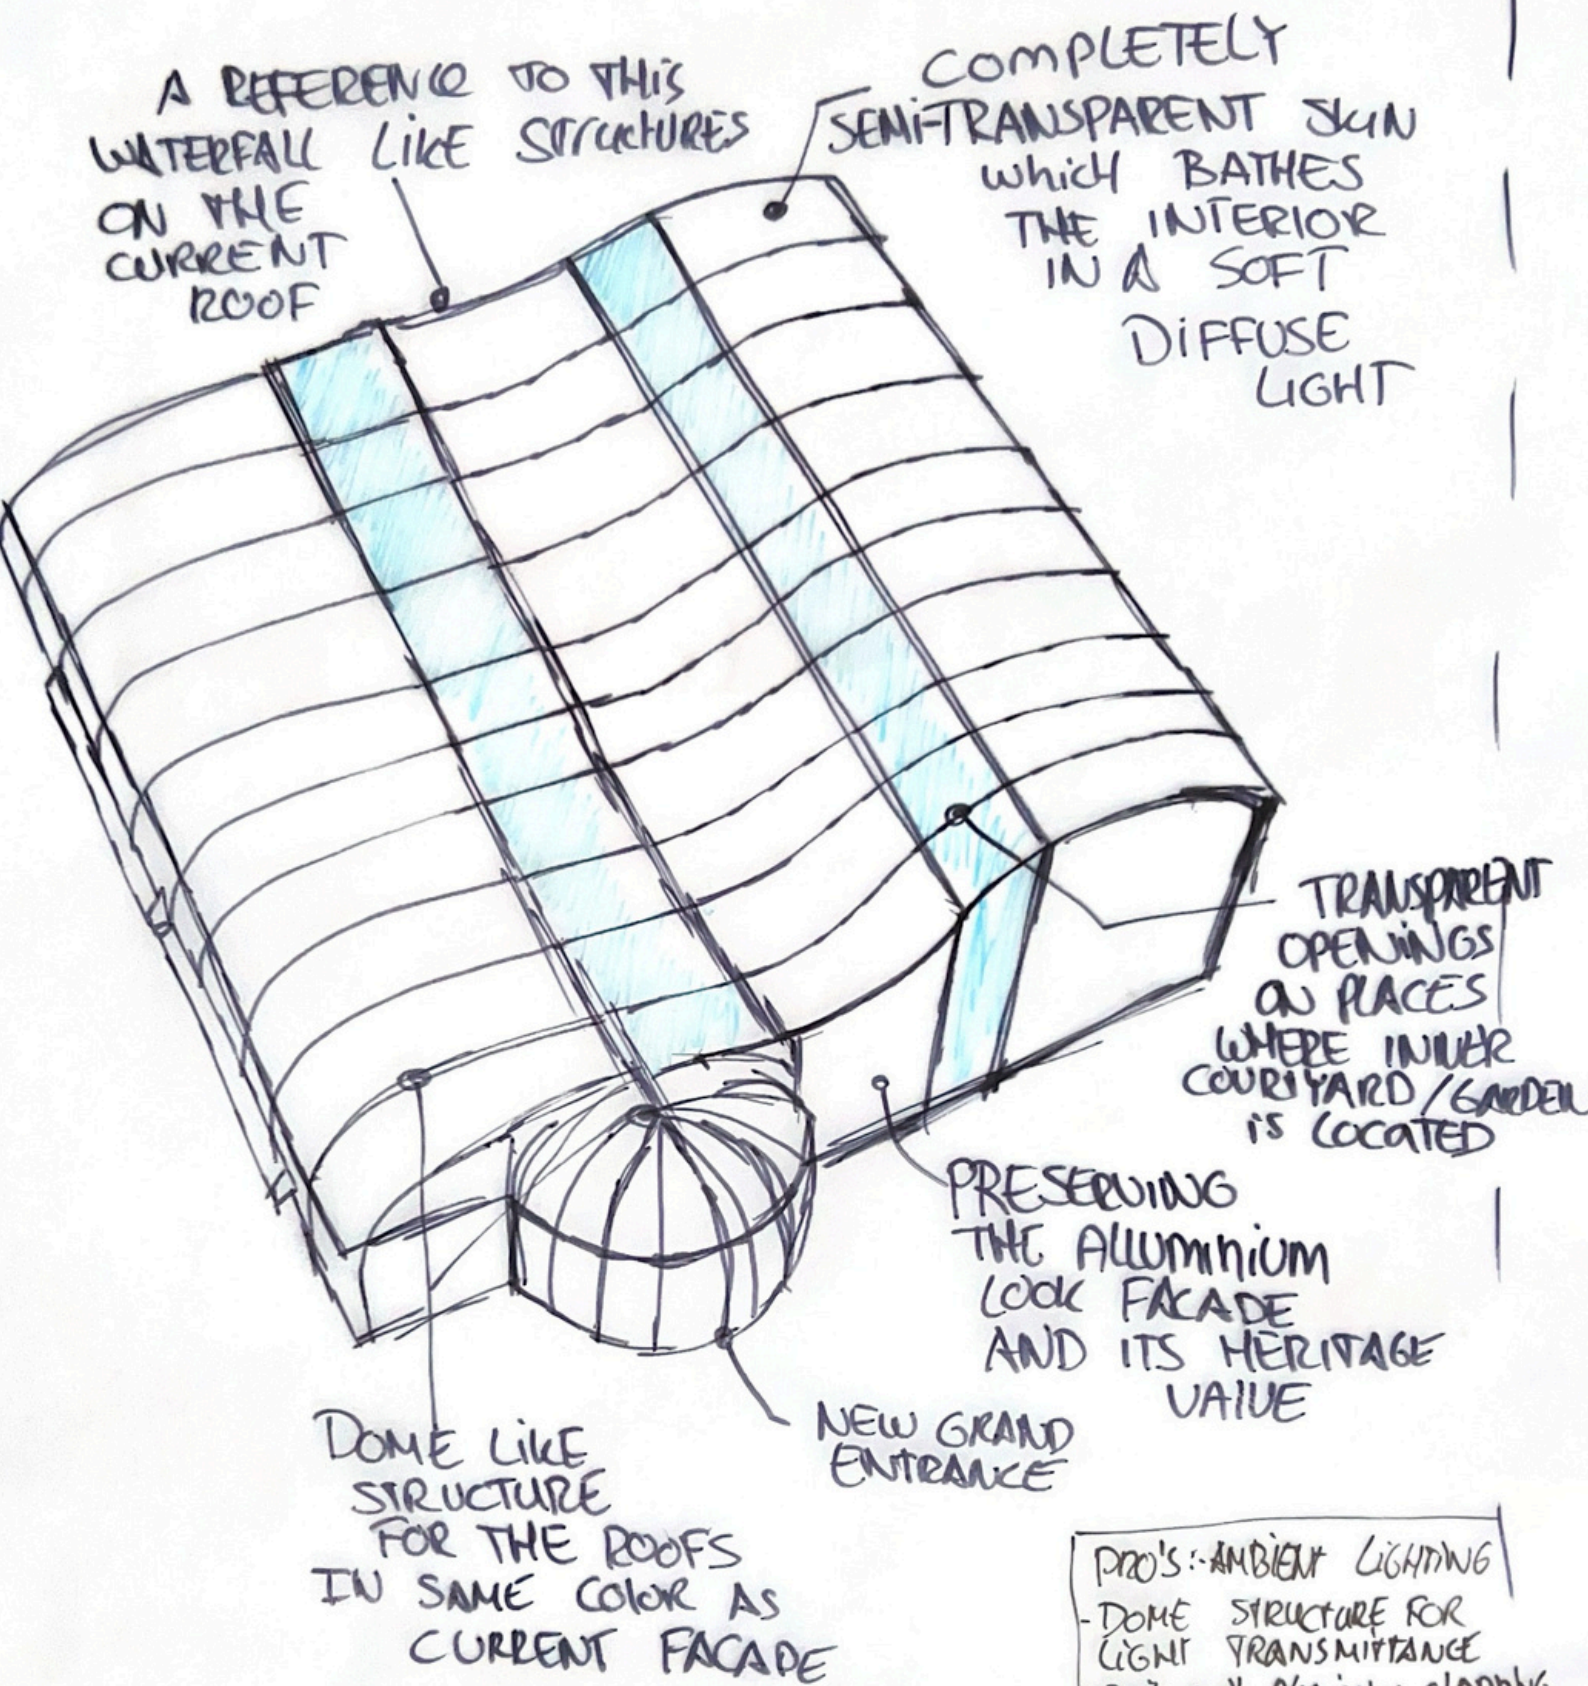 A REFERENCE TO THIS
WATERFALL LIKE STRUCTURES
ON THE
CURRENT
ROOF
COMPLETELY
SEMI-TRANSPARENT SKIN
WHICH BATHES
THE INTERIOR
IN A SOFT
DIFFUSE
LIGHT
TRANSPARENT
OPENINGS
ON PLACES
WHERE INNER
COURTYARD/GARDEN
is LOCATED
PRESERVING
THE ALLUMINIUM
LOOK FACADE
AND ITS HERITAGE
VALUE
NEW GRAND
ENTRANCE
DOME LIKE
STRUCTURE
FOR THE ROOFS
IN SAME COLOR AS
CURRENT FACADE
PRO'S:-AMBIENT LIGHTING
-DOME STRUCTURE FOR
LIGHT TRANSMITTANCE